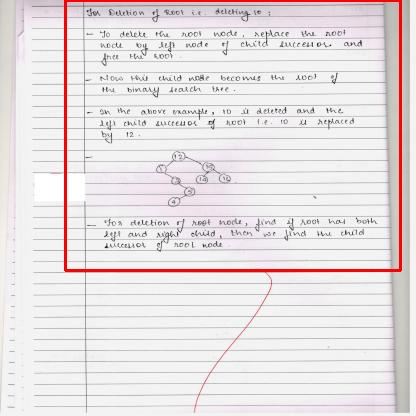 For Deletion of Root i.e. deleting 10 ;
- To delete the root node, replace the root
node by left node of child successor and
free the root.
- Now this child node becomes the root of
the binary search tree.
- In the above example, 10 is deleted and the
left child successor of root i.e. 10 is replaced
by 12.
-
12
1
3
5
4
14
- For deletion of root node, find if root has both
left and right child, then we find the child
successor of root node.